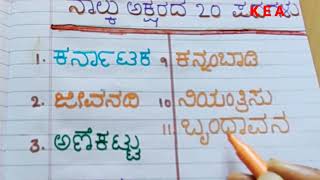 ನಾಲ್ಕು ಅಕ್ಷರದ 20 ಪದಗಳು
KEA
1. ಕರ್ನಾಟಕ
2. ಜೀವನದಿ
3. ಅಣೆಕಟ್ಟು
9 ಕನ್ನಂಬಾಡಿ
10 ನಿಯಂತ್ರಿಸು
11 ಬೃಂದಾವನ